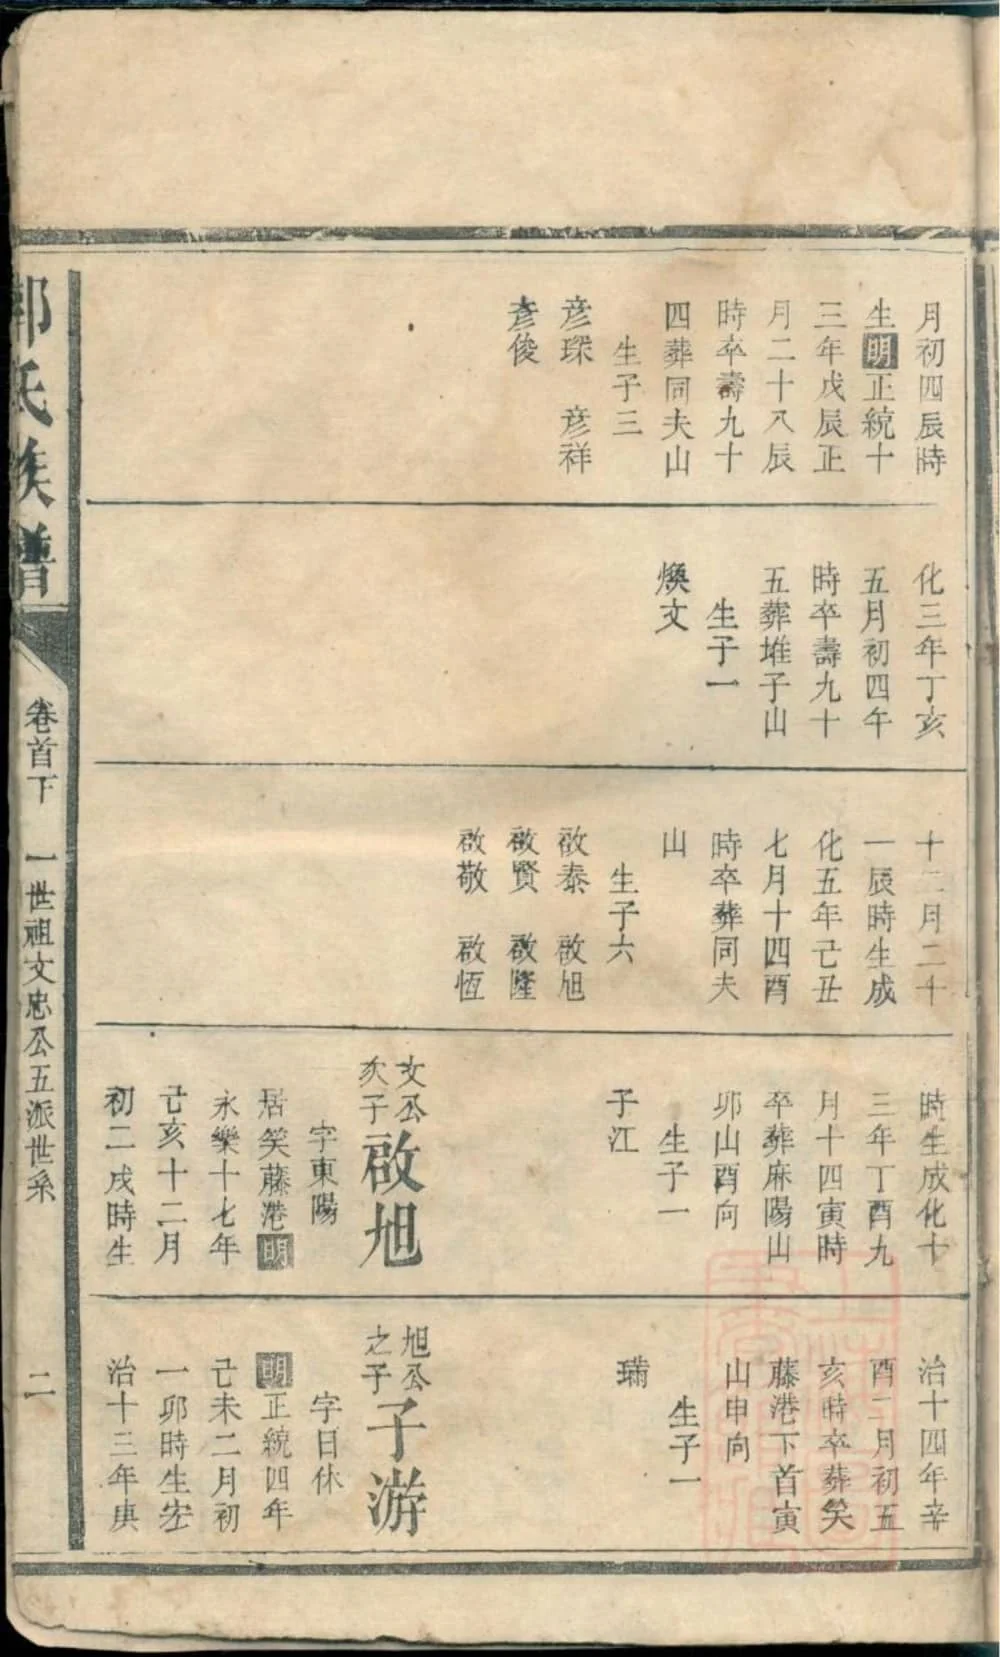 月初四辰時
生明正統十
三年戊辰正
月二十八辰
時卒壽九十
四葬同夫山
生子三
彦琛 彦祥
彦俊
化三年丁亥
五月初四午
時卒壽九十
五葬堆子山
生子一
煥文
十二月二十
一辰時生成
化五年己丑
七月十四酉
時卒葬同夫
山
生子六
啟泰 啟旭
啟賢 啟隆
啟敬 啟恆
時生成化十
三年丁酉九
月十四寅時
卒葬麻陽山
卯山酉向
生子一
子江
文公
次子啟旭
字東陽
居笑藤港明
永樂十七年
己亥十二月
初二戌時生
治十四年辛
酉二月初五
亥時卒葬笑
藤港下首寅
山申向
生子一
璊
旭公
之子子游
字日休
明正統四年
己未二月初
一卯時生宏
治十三年庚
氏族譜
卷首下
一世祖文忠公五派世系
二